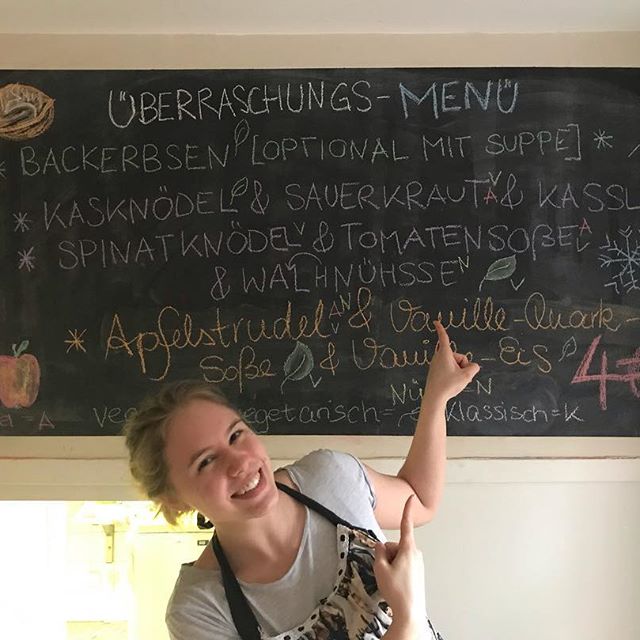 ÜBERRASCHUNGS-MENÜ
* BACKERBSEN [OPTIONAL MIT SUPPE] *
* KASKNÖDEL & SAUERKRAUT V A & KASSL
* SPINATKNÖDEL V & TOMATENSOßE A
& WALHNÜHSSE N V
* Apfelstrudel A N V & Vanille-Quark-
Soße & Vanille-Eis
4
N
= A Vegetarisch= Klassisch=K